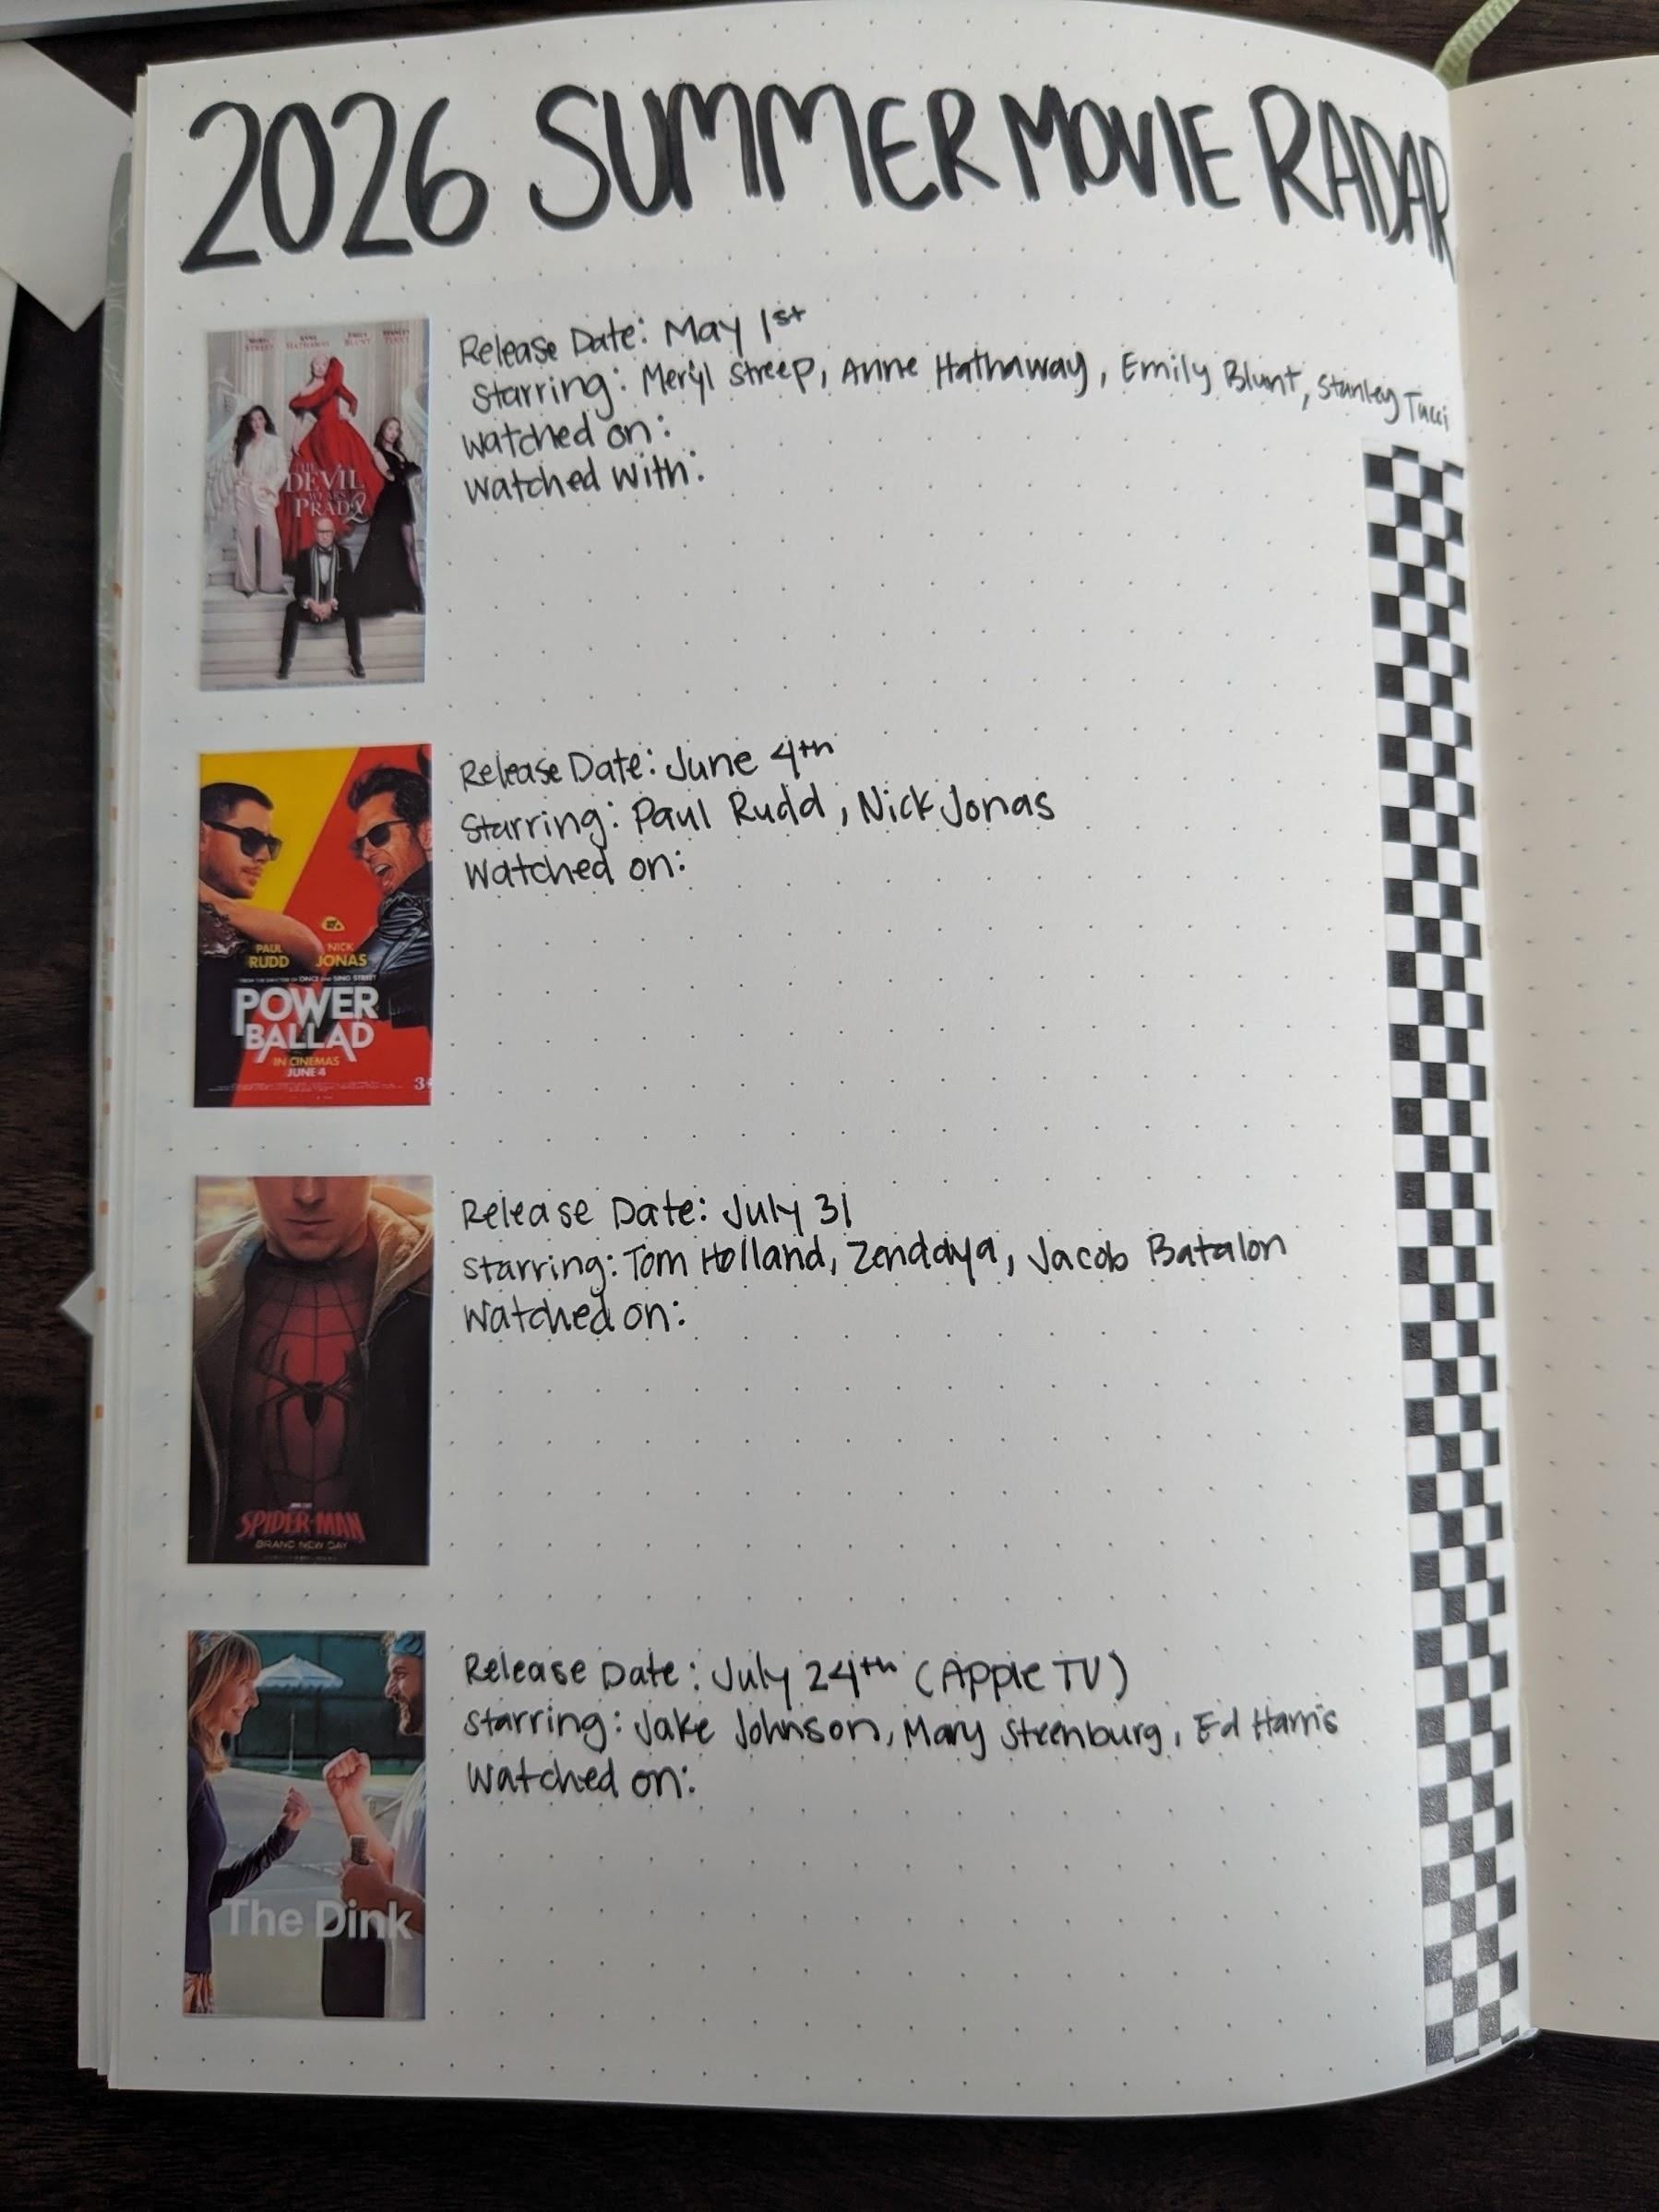 2026 SUMMER MOVIE RADAR
MERYL STREEP ANNE HATHAWAY EMILY BLUNT STANLEY TUCCI
THE DEVIL WEARS PRADA 2
Release Date: May 1st
Starring: Meryl Streep, Anne Hathaway, Emily Blunt, Stanley Tucci
Watched on:
Watched with:
PAUL RUDD NICK JONAS
FROM THE DIRECTOR OF ONCE AND SING STREET
POWER
BALLAD
IN CINEMAS
JUNE 4
Release Date: June 4th
Starring: Paul Rudd, Nick Jonas
Watched on:
SPIDER-MAN
BRAND NEW DAY
Release Date: July 31
Starring: Tom Holland, Zendaya, Jacob Batalon
Watched on:
The Dink
Release Date: July 24th (Apple TV)
Starring: Jake Johnson, Mary Steenburg, Ed Harris
Watched on: